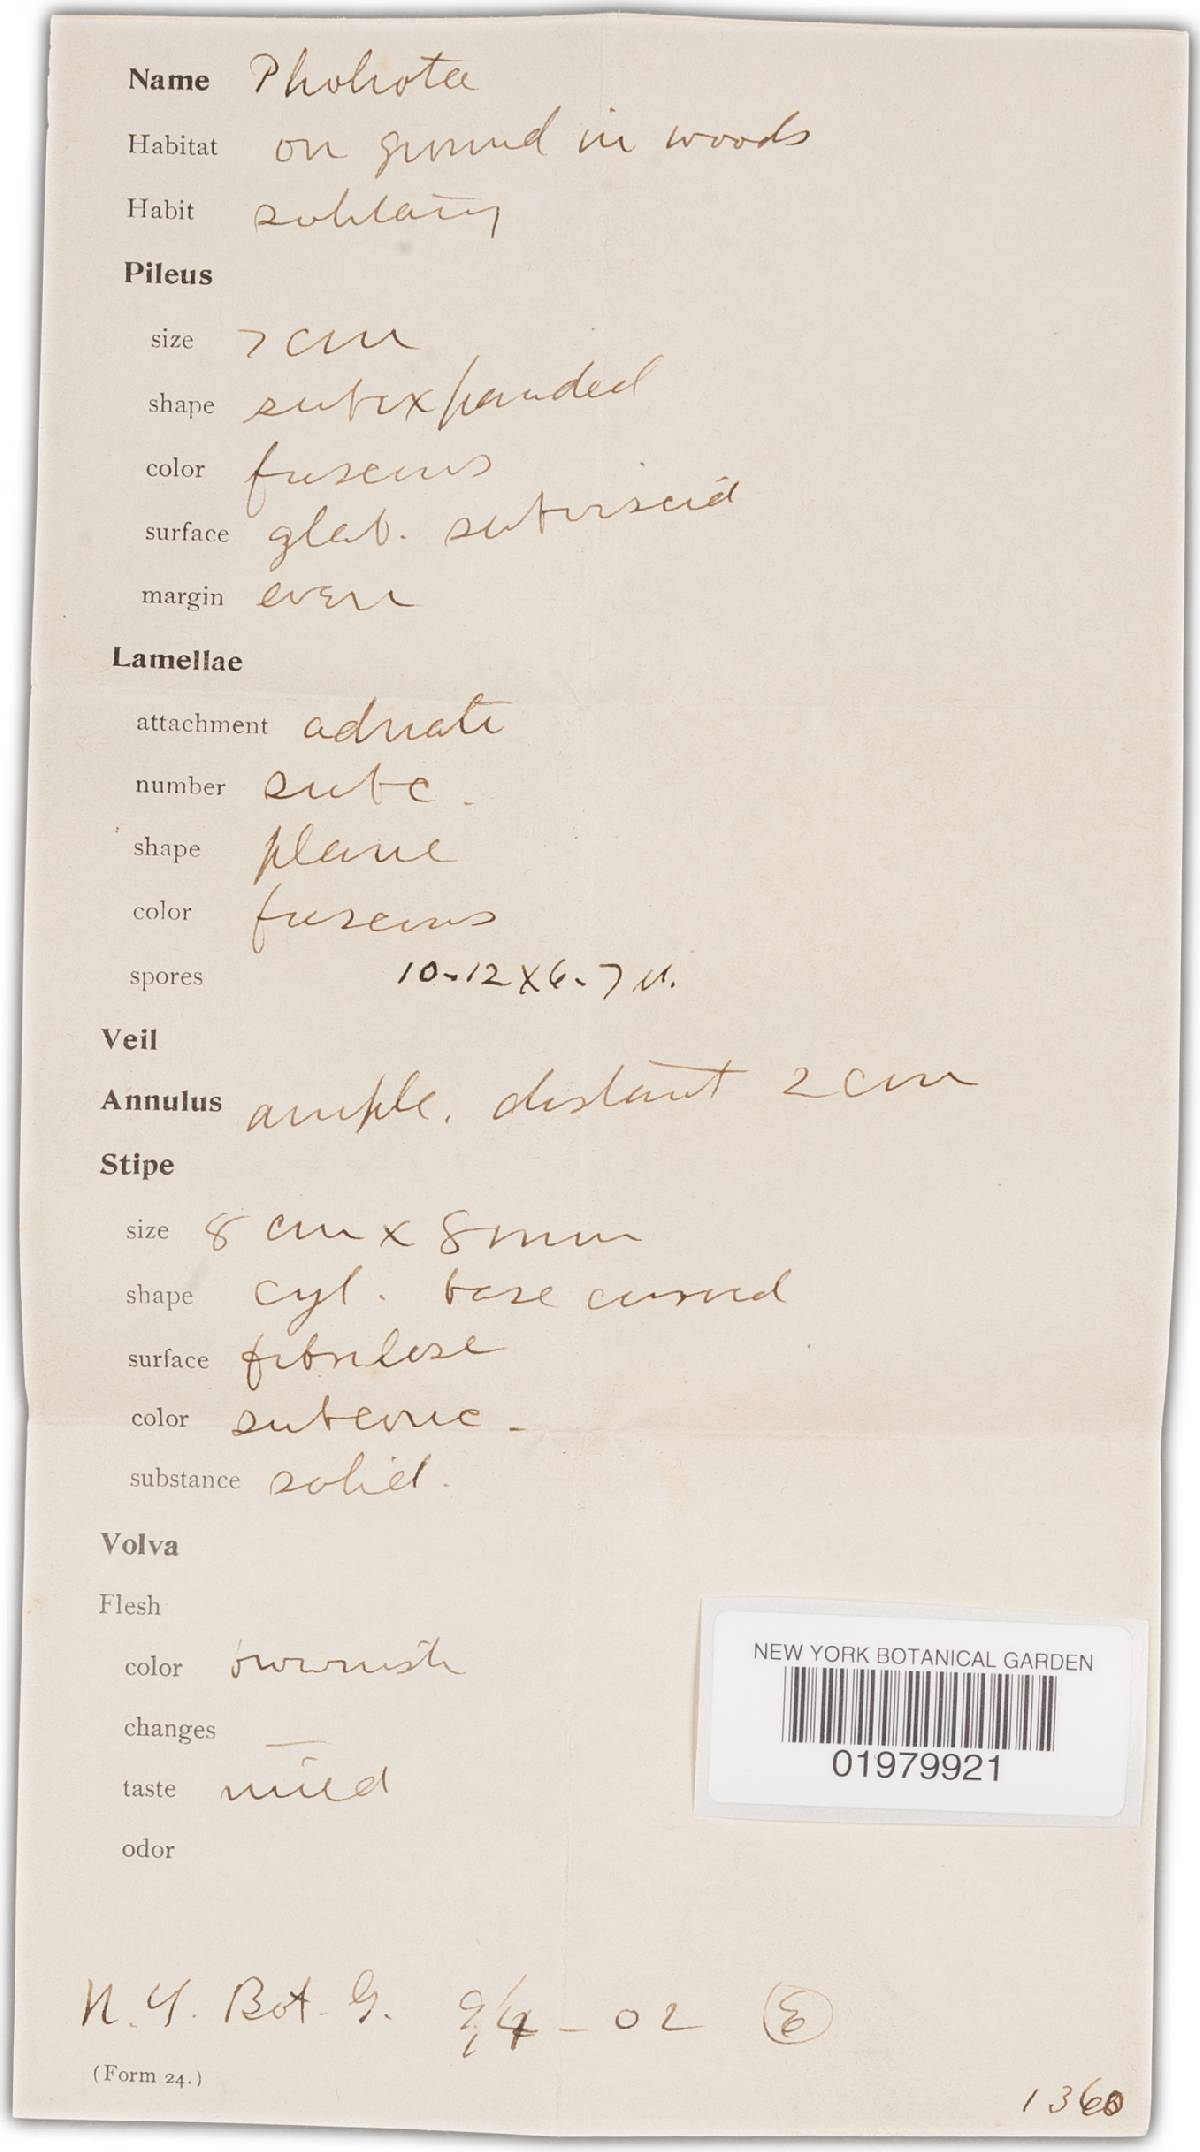 Name Pholiota
Habitat on ground in woods
Habit solitary
Pileus
size 7 cm
shape subexpanded
color fuscous
surface glab. subviscid
margin even
Lamellae
attachment adnate
number subc.
shape plane
color fuscous
spores 10-12 x 6-7 µ.
Veil
Annulus ample, distant 2 cm
Stipe
size 8 cm x 8 mm
shape cyl. base curved
surface fibrilose
color subconc.
substance solid.
Volva
Flesh
color brownish
changes —
taste mild
odor
NEW YORK BOTANICAL GARDEN
01979921
N.Y. Bot. G. 9/4 - 02 E
(Form 24.)
1360